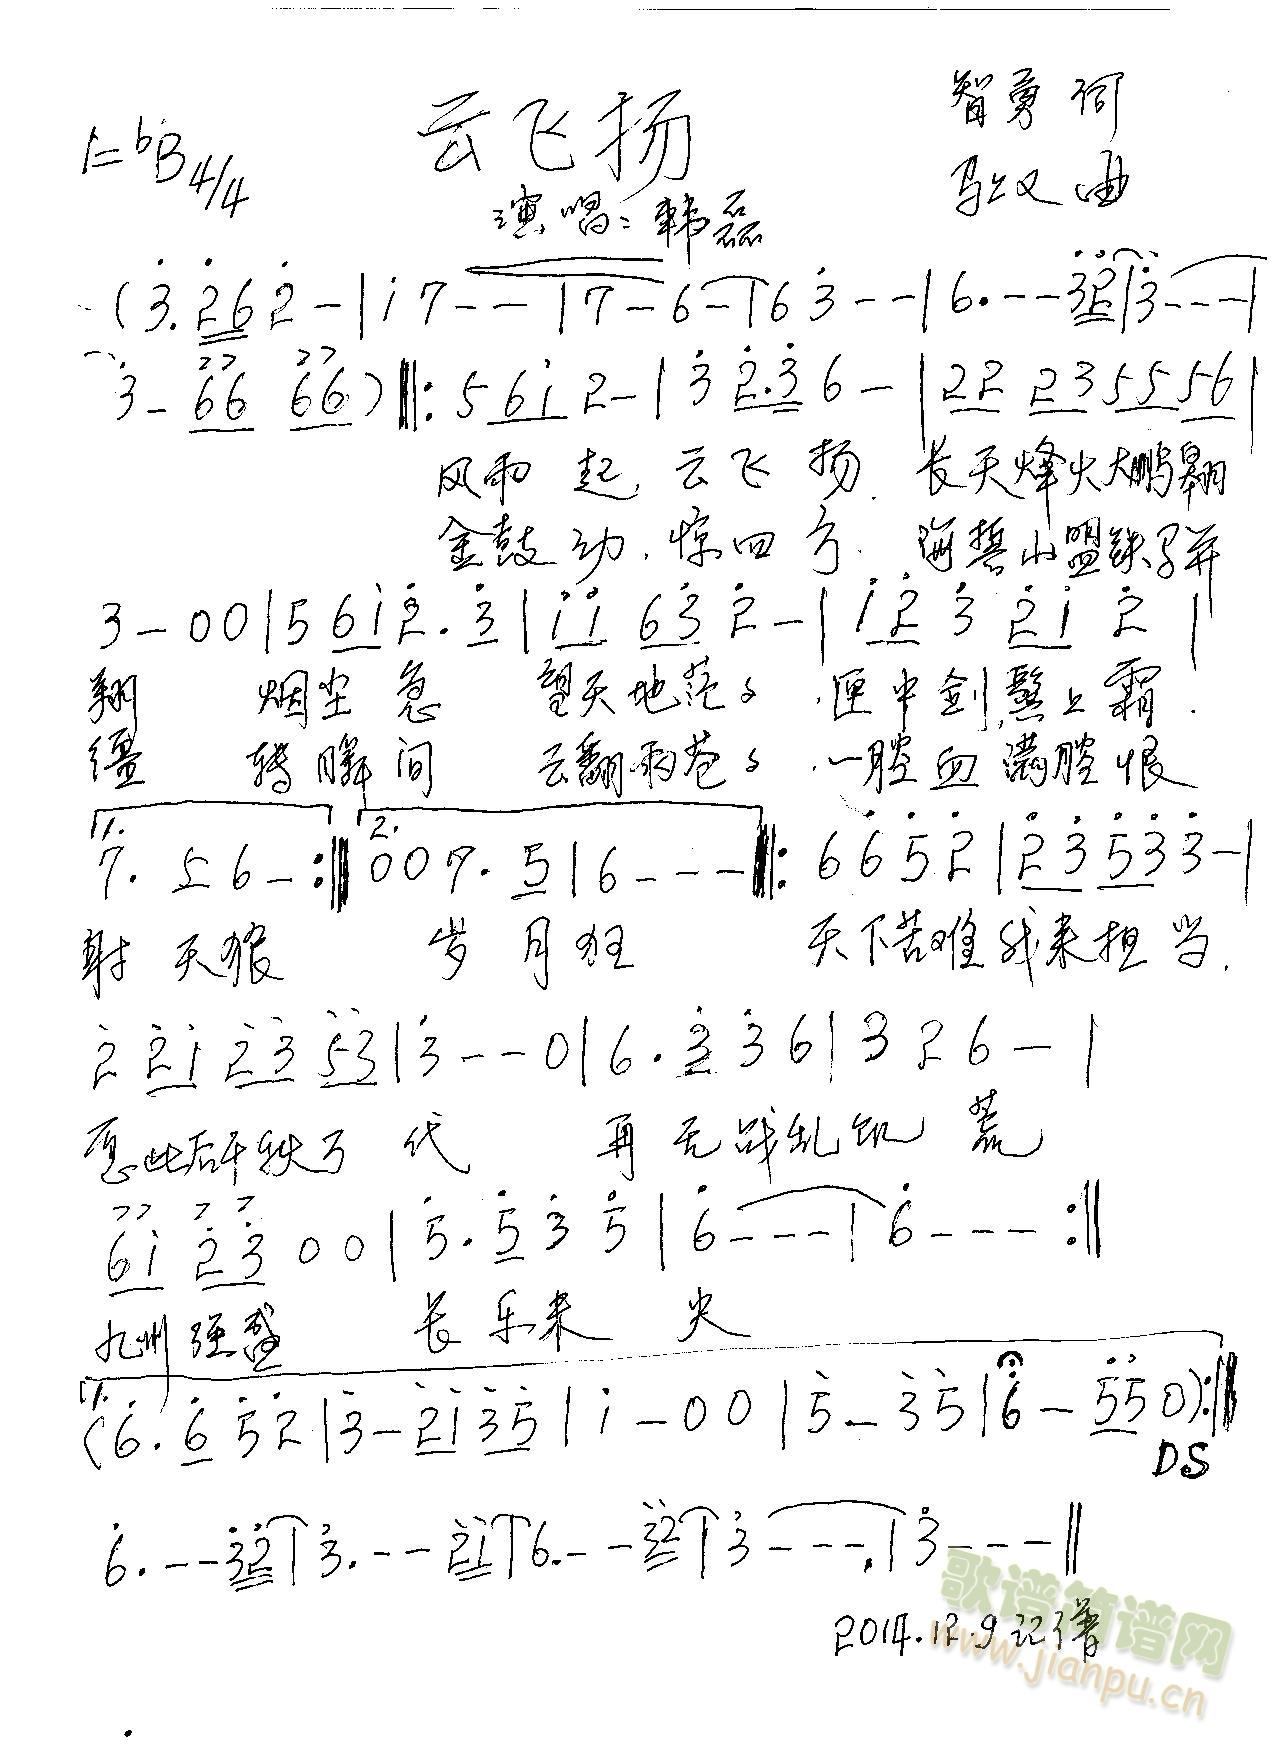 云飞扬
智勇 词
马上又 曲
1=bB 4/4
演唱:韩磊
(3. 2 6 2 - | i 7 - - | 7 - 6 - | 6 3 - - | 6. - - 3 2 | 3 - - - |
3 - 6 6 6 6 ) ‖: 5 6 i 2 - | 3 2. 3 6 - | 2 2 2 3 5 5 5 6 |
风雨起,云飞扬.长天烽火大鹏翱
金鼓动.惊四方.海誓山盟铁马并
3 - 0 0 | 5 6 i 2. 3 | i i 6 3 2 - | i 2 3 2 i 2 |
翔 烟尘急 望天地茫々.匣中剑,鬓上霜.
缰 转瞬间 云翻雨苍々.一腔血满腔恨
1. 7. 5 6 - :‖ 2. 0 0 7. 5 | 6 - - - ‖: 6 6 5 2 | 2 3 5 3 3 - |
射天狼 岁月狂 天下苦难我来担当.
2 2 i 2 3 5 3 | 3 - - 0 | 6. 3 3 6 | 3 2 6 - |
愿此后千秋万代 再无战乱饥荒
6 i 2 3 0 0 | 5. 5 3 5 | 6 - - - | 6 - - - :‖
九州强盛 长乐未央
1. (6. 6 5 2 | 3 - 2 i 3 5 | i - 0 0 | 5 - 3 5 | 6 - 5 5 0 ) :‖
DS
6. - - 3 2 | 3. - - 2 i | 6. - - 3 2 | 3 - - -. | 3 - - - ‖
2014.12.9记谱
歌谱简谱网
www.jianpu.cn